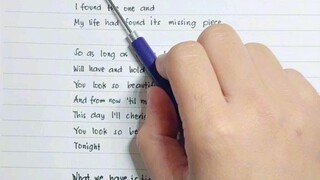 I found the one and
My life had found its missing piece
So as long as I
Will have and hold
You look so beautif
And from now 'til m
This day I'll cheri
You look so be
Tonight
What we have is ti